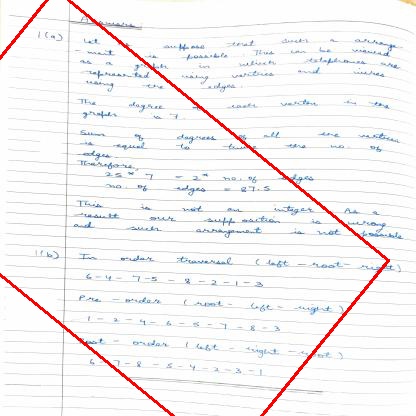 Answers:
1(a) Let us suppose that such a arrange
- ment is possible. This can be viewed
as a graph in which telephones are
represented using vertices and wires
using the edges.
The degree of each vertex in the
graph is 7.
Sum of degrees of all the vertices
is equal to twice the no. of
edges.
Therefore,
25 * 7 = 2 * no. of edges
no. of edges = 87.5
This is not an integer. As a
result our supposition is wrong
and such arrangement is not possible
1(b) In order traversal (left - root - right)
6 - 4 - 7 - 5 - 8 - 2 - 1 - 3
Pre - order (root - left - right)
1 - 2 - 4 - 6 - 5 - 7 - 8 - 3
Post - order (left - right - root)
6 - 7 - 8 - 5 - 4 - 2 - 3 - 1